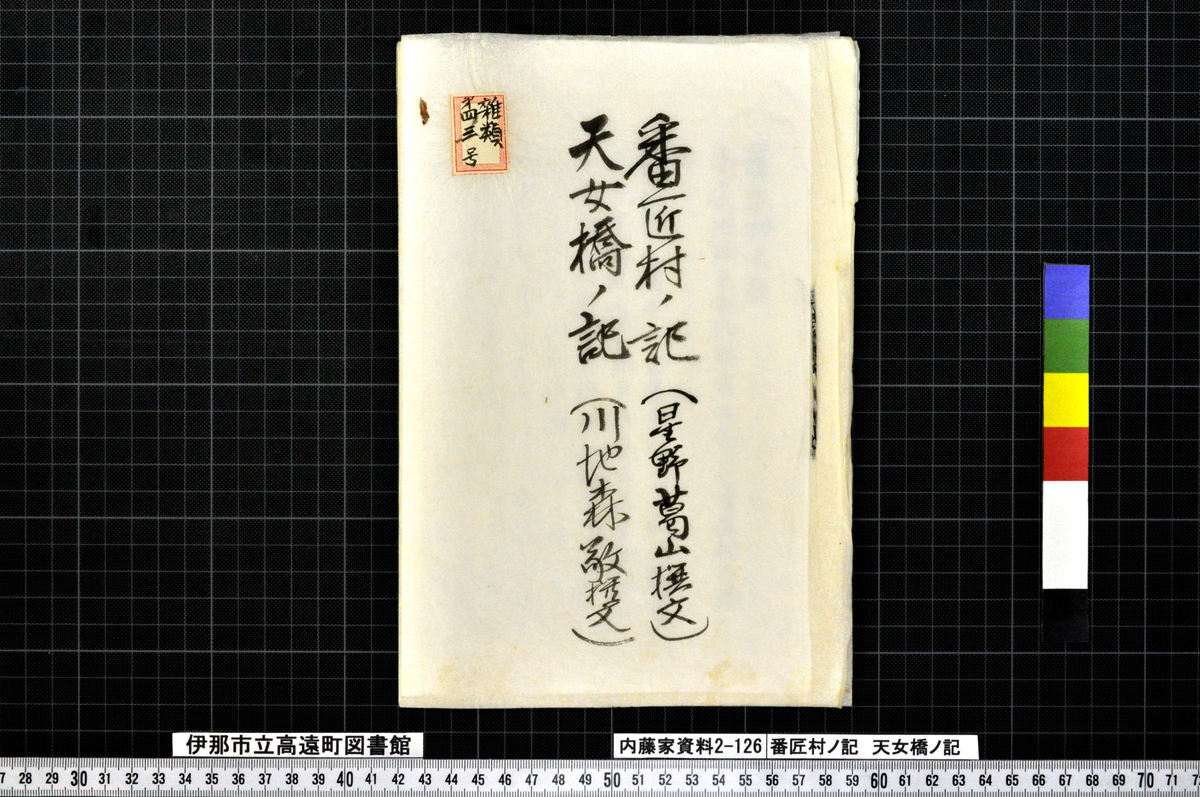 番匠村ノ記(星野葛山撰文)
天女橋ノ記(川地森敬撰文)
雑類
第四三号
伊那市立高遠町図書館
内藤家資料2-126
番匠村ノ記 天女橋ノ記
27 28 29 30 31 32 33 34 35 36 37 38 39 40 41 42 43 44 45 46 47 48 49 50 51 52 53 54 55 56 57 58 59 60 61 62 63 64 65 66 67 68 69 70 71